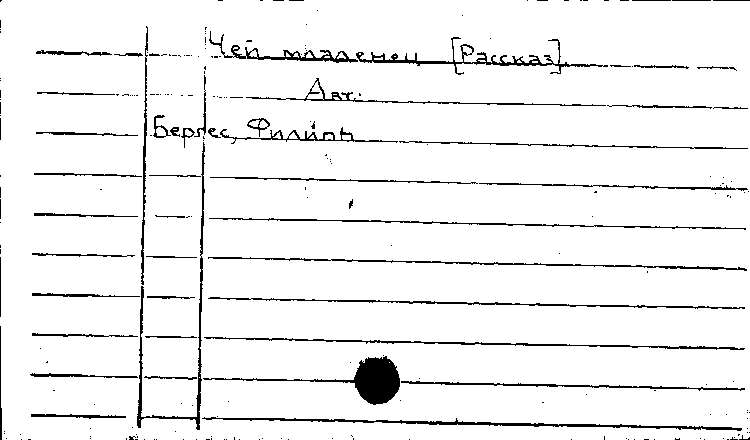 Чей младенец [Рассказ].
Авт.:
Бергес, Филипп